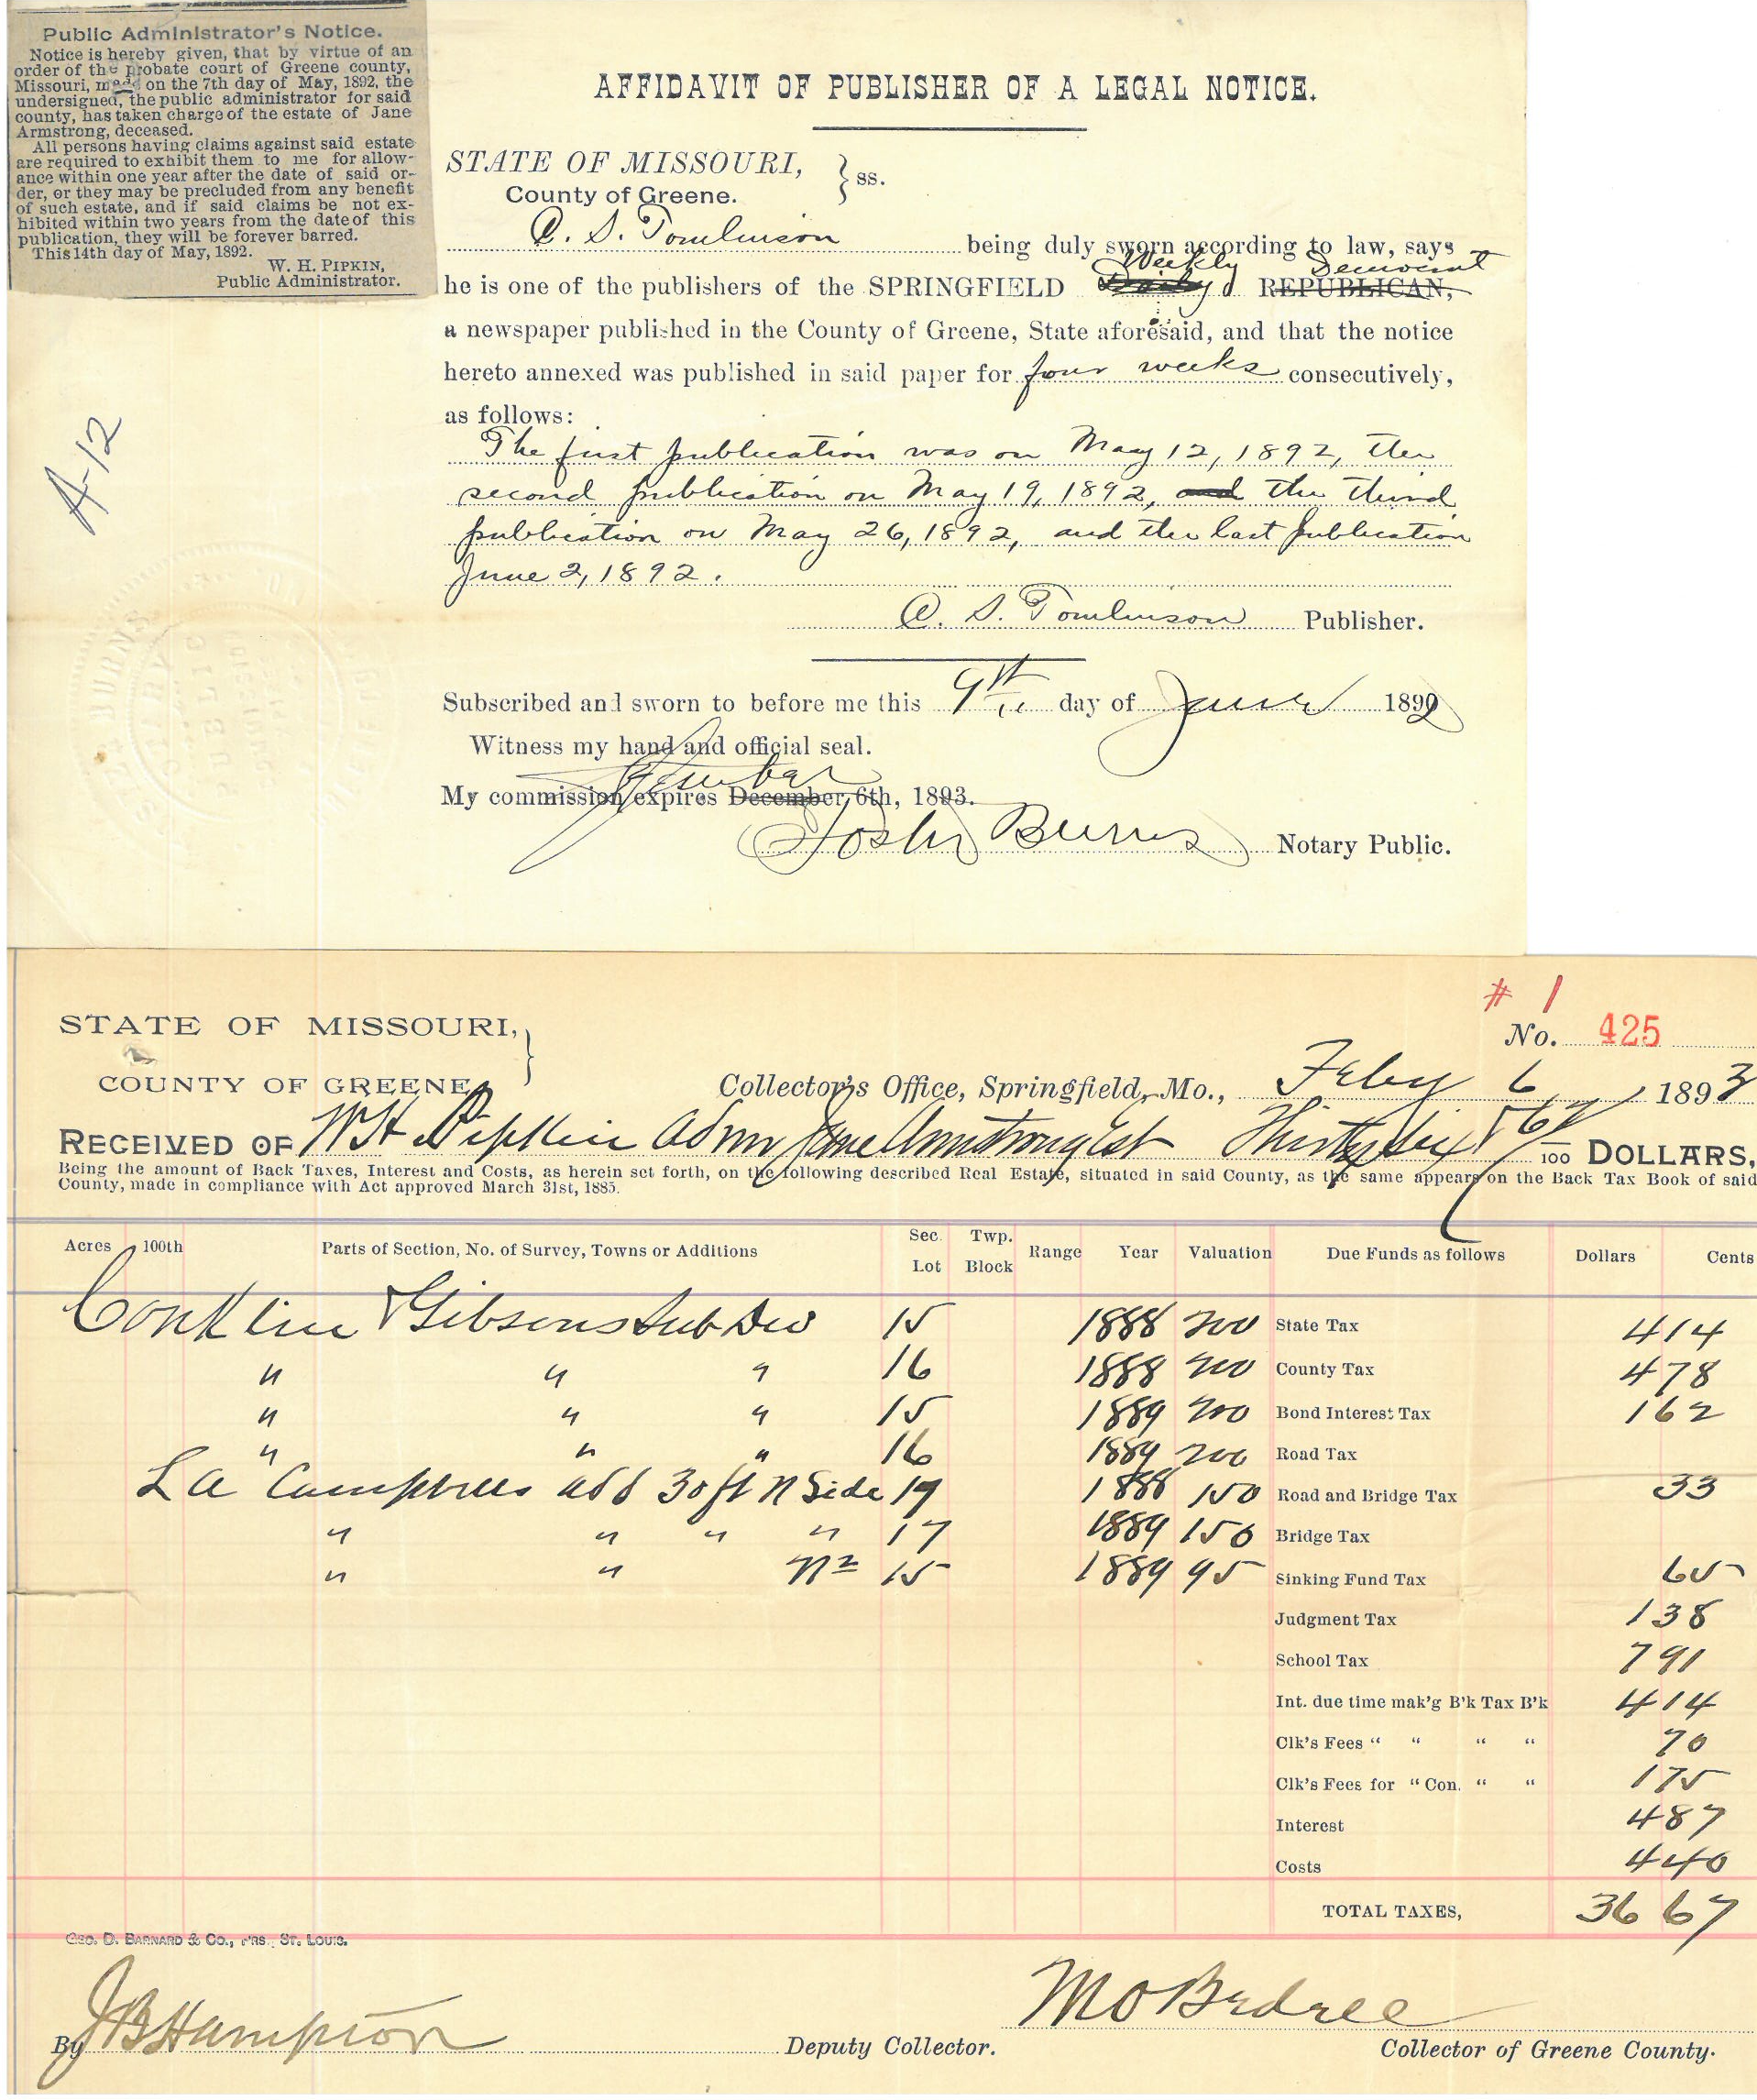 Public Administrator's Notice.
Notice is hereby given, that by virtue of an
order of the probate court of Greene county,
Missouri, made on the 7th day of May, 1892, the
undersigned, the public administrator for said
county, has taken charge of the estate of Jane
Armstrong, deceased.
All persons having claims against said estate
are required to exhibit them to me for allow-
ance within one year after the date of said or-
der, or they may be precluded from any benefit
of such estate, and if said claims be not ex-
hibited within two years from the date of this
publication, they will be forever barred.
This 14th day of May, 1892.
W. H. PIPKIN,
Public Administrator.
A-12
AFFIDAVIT OF PUBLISHER OF A LEGAL NOTICE.
STATE OF MISSOURI, } ss.
County of Greene.
C. S. Tomlinson being duly sworn according to law, says
Weekly Democrat
he is one of the publishers of the SPRINGFIELD Daily REPUBLICAN,
a newspaper published in the County of Greene, State aforesaid, and that the notice
hereto annexed was published in said paper for four weeks consecutively,
as follows:
The first publication was on May 12, 1892, the
second publication on May 19, 1892, and the third
publication on May 26, 1892, and the last publication
June 2, 1892.
C. S. Tomlinson Publisher.
Subscribed and sworn to before me this 9th day of June 1892
Witness my hand and official seal.
My commission expires December 6th, 1893.
Burns Notary Public.
# 1
No. 425
STATE OF MISSOURI, }
COUNTY OF GREENE
Collector's Office, Springfield, Mo., Feby 6 1893
RECEIVED OF W H Pipkin Admr Jane Armstrong Est Thirty Six & 67/100 DOLLARS,
Being the amount of Back Taxes, Interest and Costs, as herein set forth, on the following described Real Estate, situated in said County, as the same appears on the Back Tax Book of said
County, made in compliance with Act approved March 31st, 1885.
Acres 100th Parts of Section, No. of Survey, Towns or Additions Sec. Lot Twp. Block Range Year Valuation Due Funds as follows Dollars Cents
Conklin & Gibsons Sub Div 15 1888 200 State Tax 4 14
" " " 16 1888 200 County Tax 4 78
" " " 15 1889 200 Bond Interest Tax 1 62
" " " 16 1889 200 Road Tax
L A Campbells add 30 ft N Side 19 1888 150 Road and Bridge Tax 33
" " " " 17 1889 150 Bridge Tax
" " N 2 15 1889 95 Sinking Fund Tax 65
Judgment Tax 1 38
School Tax 7 91
Int. due time mak'g B'k Tax B'k 4 14
Clk's Fees " " " " 70
Clk's Fees for "Con. " " 1 75
Interest 4 87
Costs 4 40
TOTAL TAXES, 36 67
GEO. D. BARNARD & CO., P'RS. ST. LOUIS.
By J B Hampton Deputy Collector.
M O Bedell Collector of Greene County.